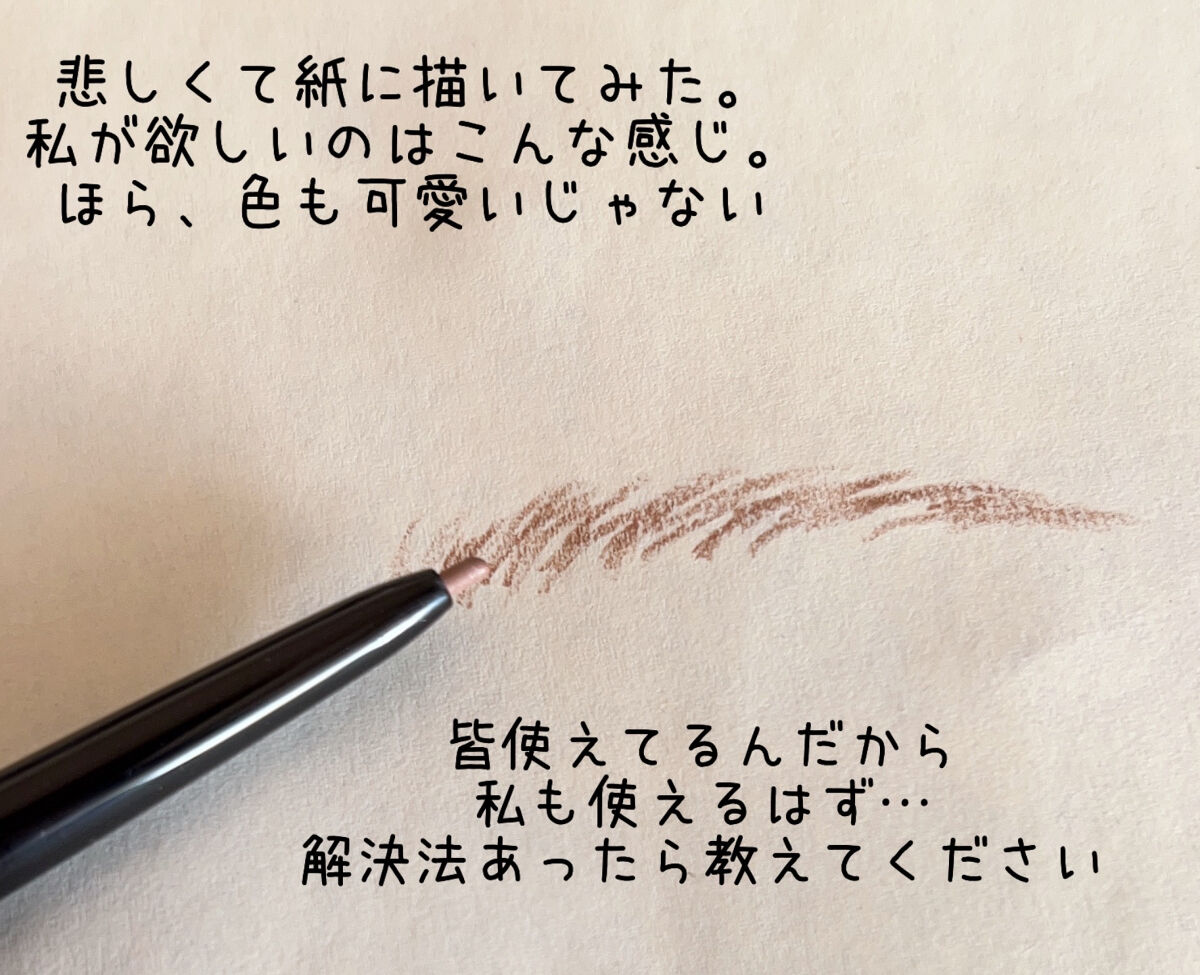 悲しくて紙に描いてみた。
私が欲しいのはこんな感じ。
ほら、色も可愛いじゃない
皆使えてるんだから
私も使えるはず…
解決法あったら教えてください